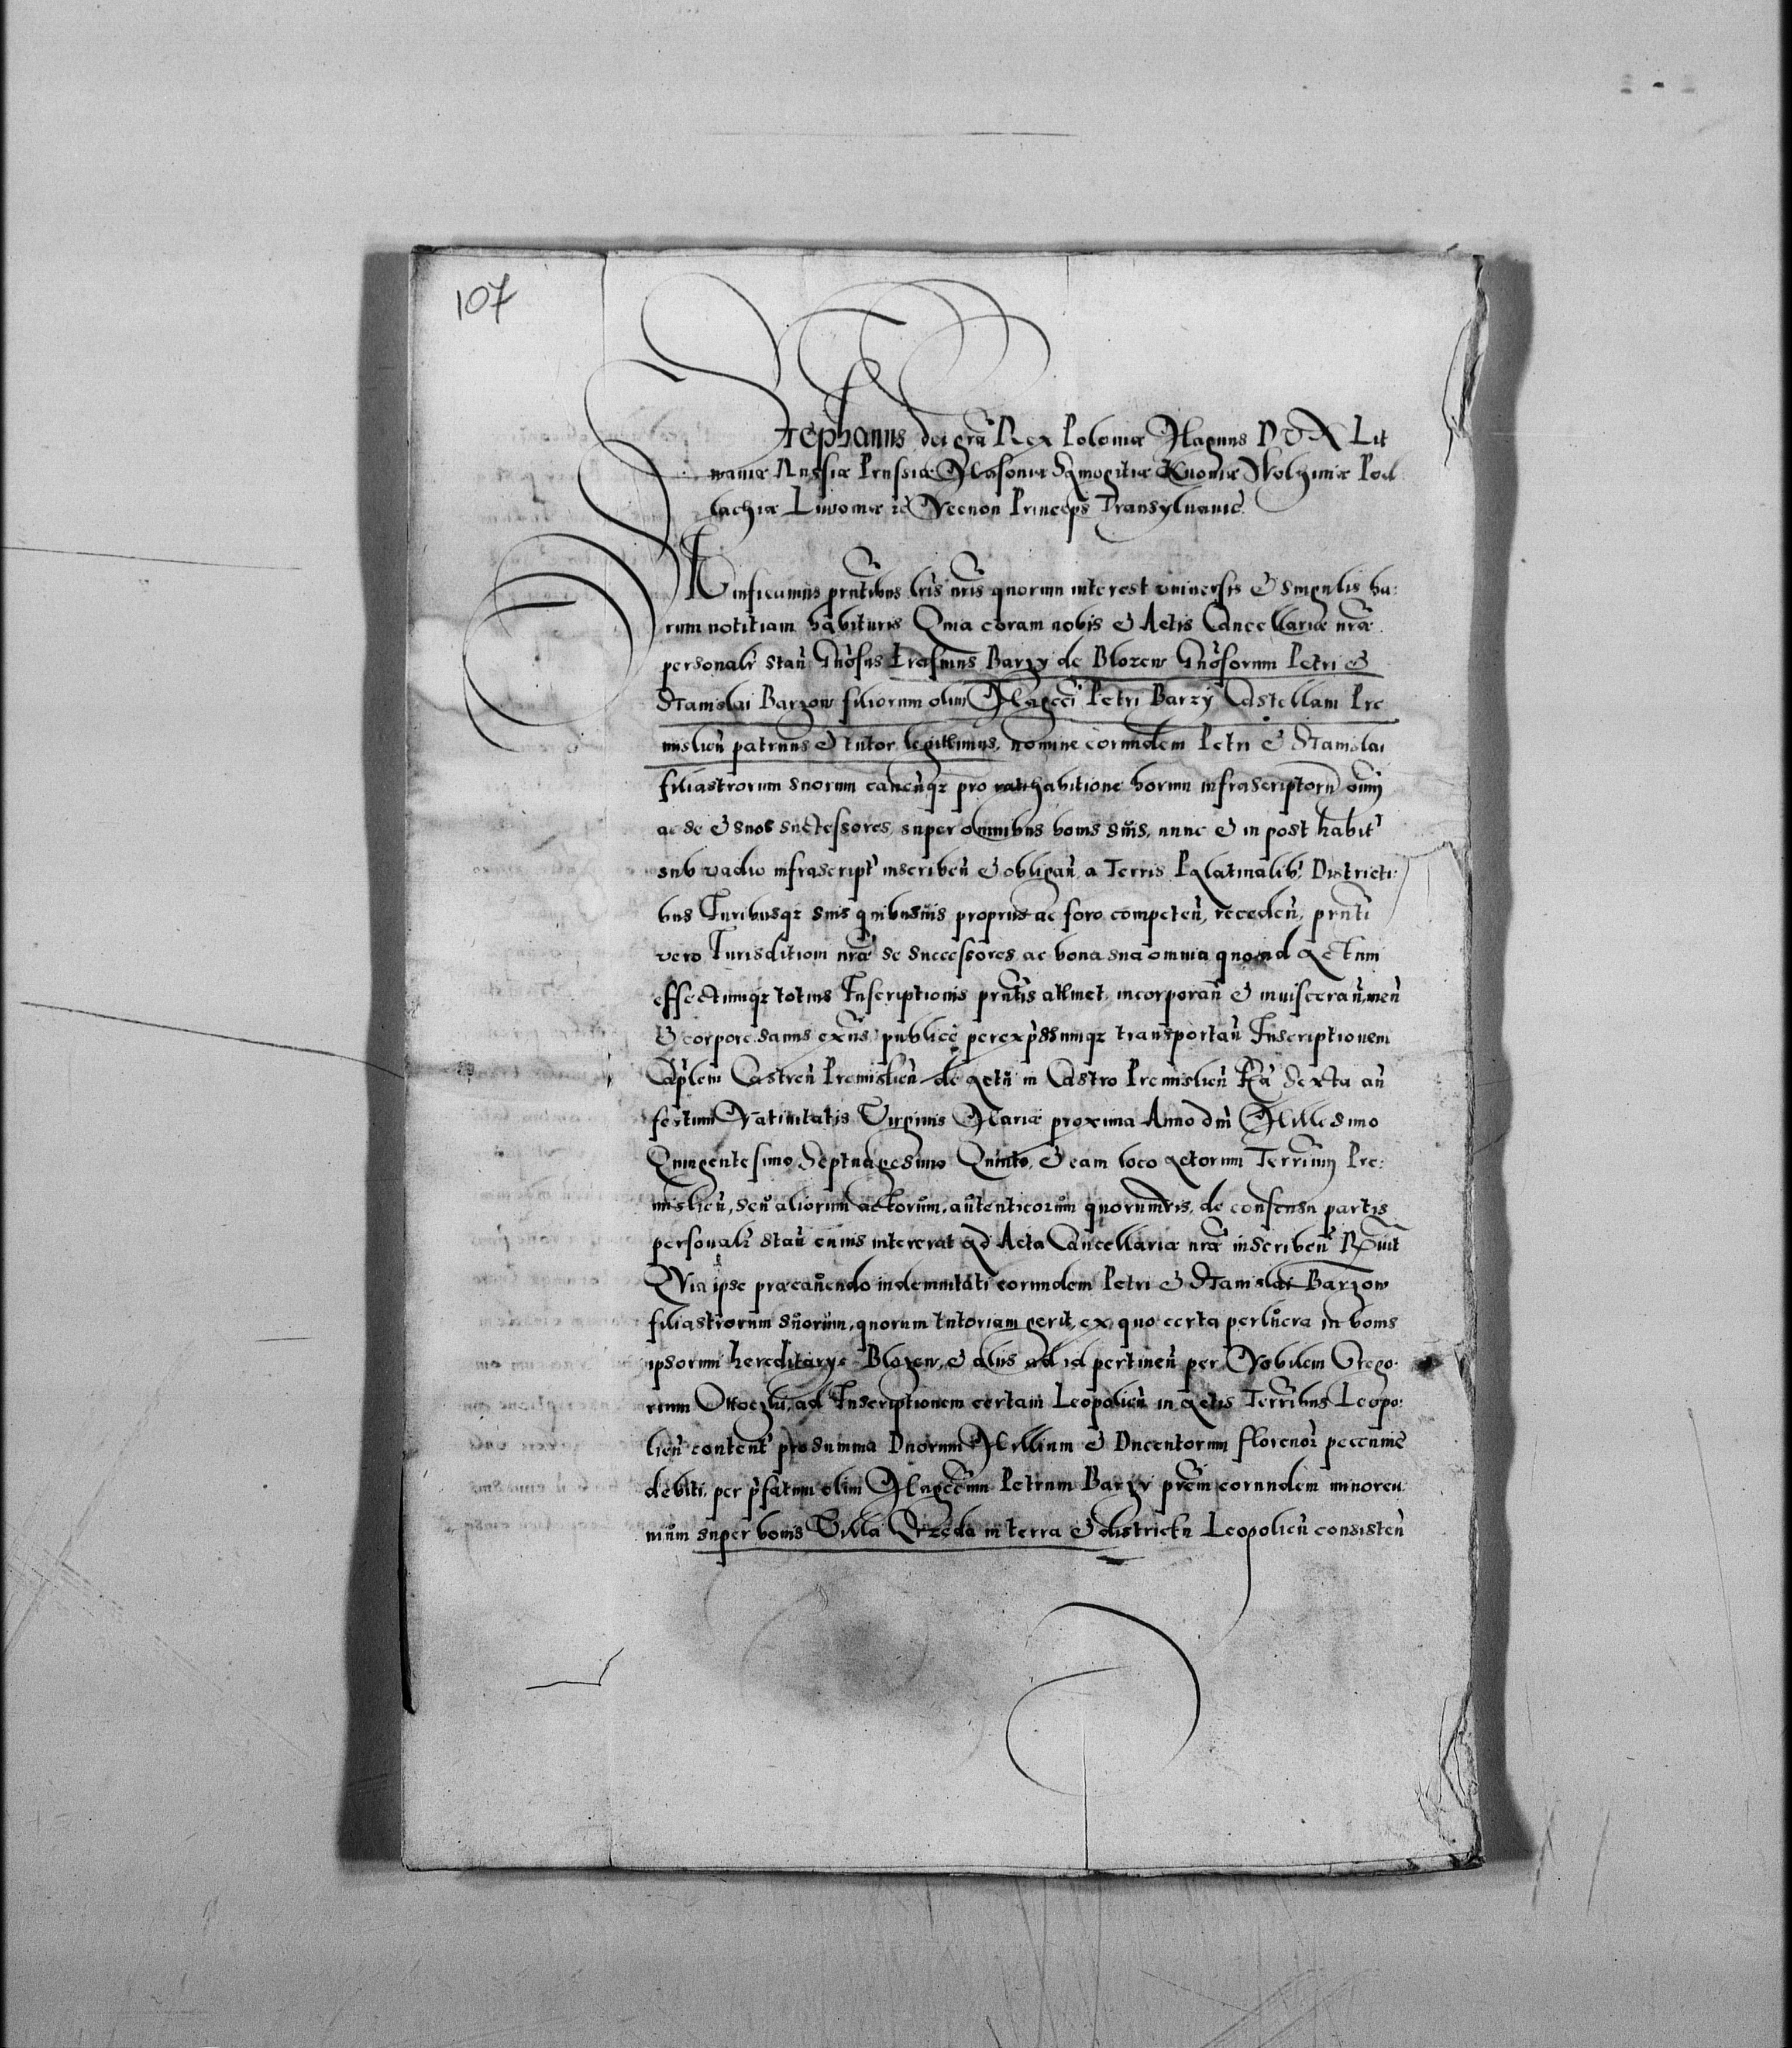 107
Stephanus dei grã Rex Poloniæ Magnus DVX Lit
waniæ Russiæ Prussiæ Masoviæ Samogitiæ Kijoviæ Wolhyniæ Pod
lachiæ Livoniæ zc Necnon Princeps Transylvaniæ
Significamus pñtibus lris nris quorum interest vniversis & singulis ha:
rum notitiam habituris Quia coram nobis & Actis Cancellariæ nræ
personalr stañ Gñosus Erasmus Barzy de Blozew Gñosorum Petri &
Stanislai Barzow filiorum olim Magcci Petri Barzy Castellani Pre
mislień patruus & tutor legittimus, nomine eorundem Petri & Stanislai
filiastrorum suorum caveñqz pro rathabitione horum infrascriptorũ oim
ac se & suos successores, super omnibus bonis suis, nunc & in post habit
sub vadio infrascript inscribeñ & obligañ, a Terris Palatinatib Districti
bus Iuribusqz suis quibusuis proprijs ac foro competeñ, recedeñ, pñti
vero Iurisditioni nræ se successores ac bona sua omnia quoad actum
effectumqz totius Inscriptionis pñtis attinet, incorporañ & inuiscerañ, meñ
& corpore sanus exñs, publice per expssumqz transportañ Inscriptionem
Caplem Castreñ Premislień de actu in Castro Premislień Fia Sexta añ
festum Nativitatis Virginis Mariæ proxima Anno dñi Millesimo
Quingentesimo Septuagesimo Quinto, & eam loco actorum Terrium Pre:
mislień, seu aliorum actorum, autenticorum quorumvis, de consensu partis
personalr stañ cuius intererat ad Acta Cancellariæ nræ inscribeñ
Quia ipse præcavendo indemnitati eorundem Petri & Stanislai Barzow
filiastrorum suorum, quorum tutoriam gerit, ex quo certa perlucra in bonis
ipsorum hereditarys Blozew & alijs ad id pertineñ per Nobilem Grego:
rium ad Inscriptionem certam Leopolień in Actis Terribus Leopo:
lień content pro summa Duorum Millium & Ducentorum florenor pecuniæ
debiti, per pfatum olim Magccum Petrum Barzy prem eorundem minoren
nium super bonis Villa in terra & districtu Leopolień consisteñ